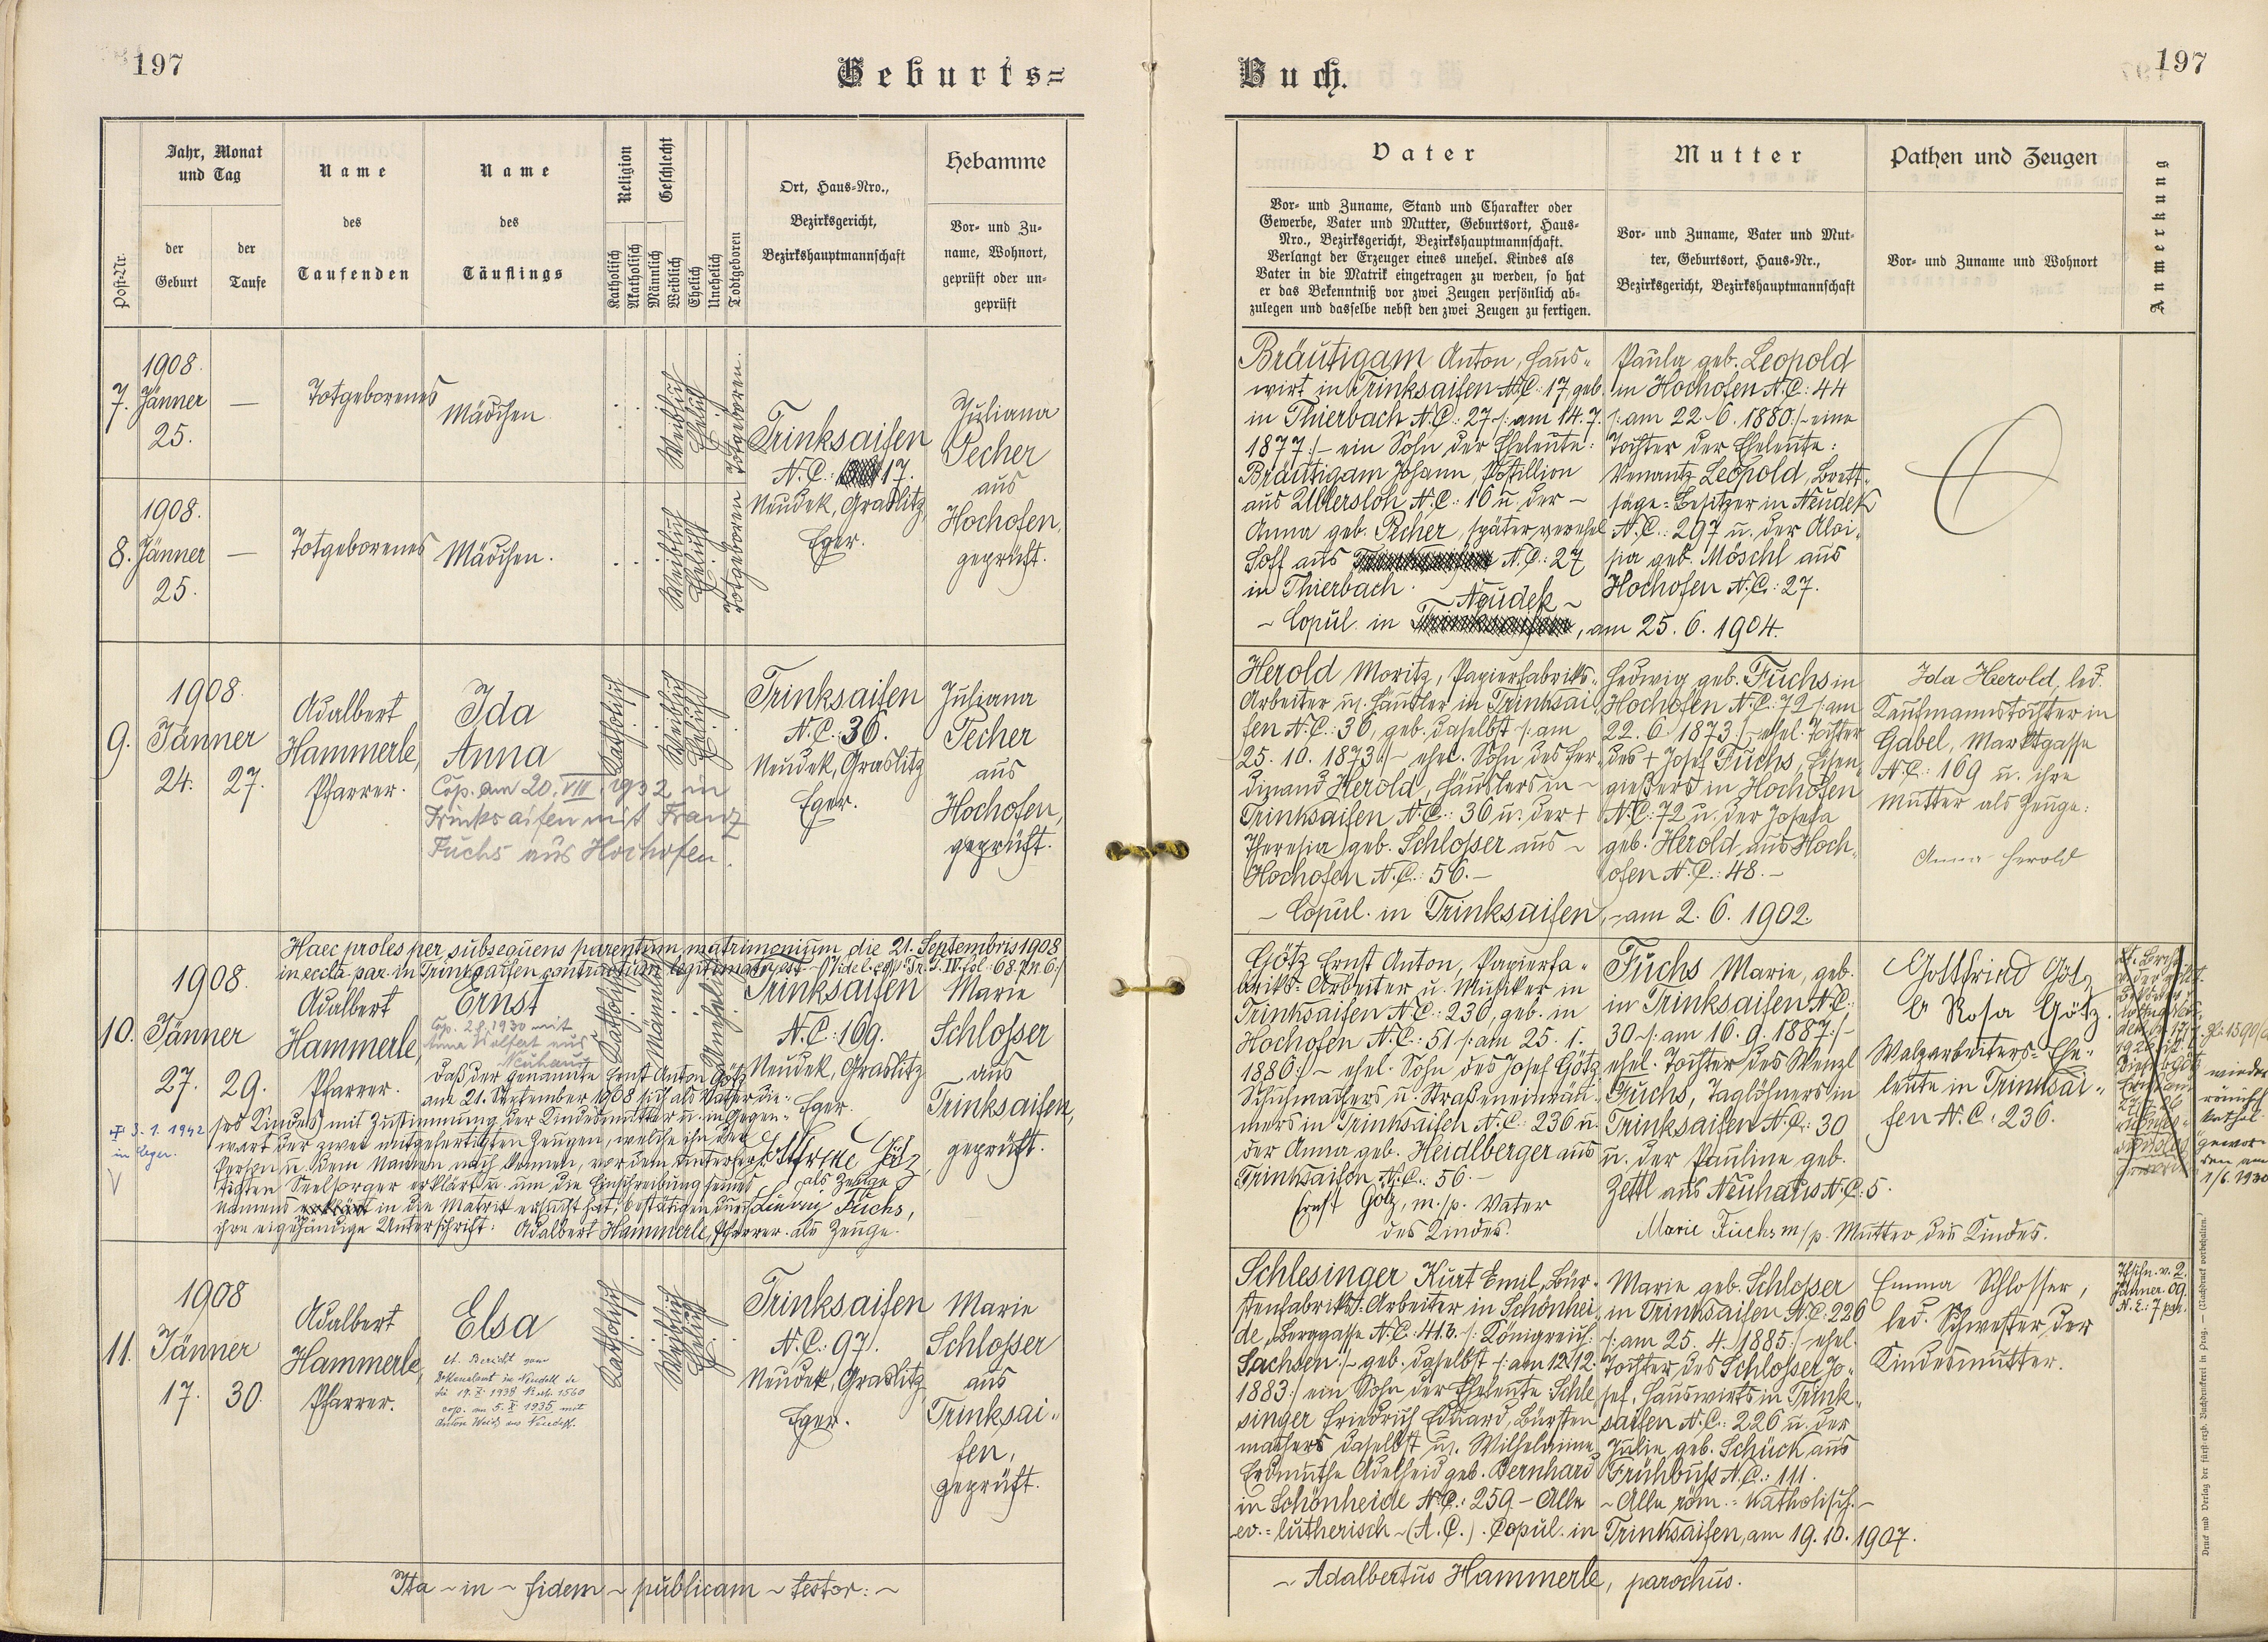 197
Geburts=
Buch.
197
Post-Nr.
Jahr, Monat
und Tag
der
Geburt
der
Taufe
Name
des
Taufenden
Name
des
Täuflings
Religion
Katholisch
Akatholisch
Geschlecht
Männlich
Weiblich
Ehelich
Unehelich
Todtgeboren
Ort, Haus-Nro.,
Bezirksgericht,
Bezirkshauptmannschaft
Hebamme
Vor- und Zu-
name, Wohnort,
geprüft oder un-
geprüft
Vater
Vor- und Zuname, Stand und Charakter oder
Gewerbe, Vater und Mutter, Geburtsort, Haus-
Nro., Bezirksgericht, Bezirkshauptmannschaft.
Verlangt der Erzeuger eines unehel. Kindes als
Vater in die Matrik eingetragen zu werden, so hat
er das Bekenntniß vor zwei Zeugen persönlich ab-
zulegen und dasselbe nebst den zwei Zeugen zu fertigen.
Mutter
Vor- und Zuname, Vater und Mut-
ter, Geburtsort, Haus-Nr.,
Bezirksgericht, Bezirkshauptmannschaft
Pathen und Zeugen
Vor- und Zuname und Wohnort
Anmerkung
7.
1908.
Jänner
25.
—
Totgeborenes
Mädchen
Weiblich
Ehelich
Totgeboren.
8.
1908.
Jänner
25.
—
Totgeborenes
Mädchen.
Weiblich
Ehelich
Totgeboren
Trinksaifen
N.C.: 17.
Neudek, Graslitz,
Eger.
Juliana
Pecher
aus
Hochofen,
geprüft.
Bräutigam Anton, Haus-
wirt in Trinksaifen N.C. 17 geb.
in Thierbach N.C.: 27 /: am 14.7.
1877 :/ – ein Sohn der Eheleute:
Bräutigam Johann, Postillion
aus Ullersloh, N.C.: 16 u. der –
Anna geb. Pecher, später verehel
Hoff aus N.C.: 27
in Thierbach.
Neudek ~
~ Copul. in , am 25. 6. 1904.
Paula geb. Leopold
in Hochofen N.C.: 44
/: am 22. 6. 1880 :/ – eine
Tochter der Eheleute:
Venantz Leopold, Brett-
säge-Besitzer in Neudek
N.C.: 297 u. der Aloi-
sia geb. Möschl aus
Hochofen N.C.: 27.
9.
1908.
Jänner
24. 27.
Adalbert
Hammerle,
Pfarrer.
Ida
Anna
Cop. am 20. VIII. 1932 in
Trinksaifen mit Franz
Fuchs aus Hochofen.
Katholisch
Weiblich
Ehelich
Trinksaifen
N.C.: 36.
Neudek, Graslitz
Eger.
Juliana
Pecher
aus
Hochofen,
geprüft.
Herold Moritz, Papierfabriks-
Arbeiter u. Häusler in Trinksai-
fen N.C.: 36, geb. daselbst /: am
25. 10. 1873 :/ – ehel. Sohn des Fer-
dinand Herold, Häuslers in ~
Trinksaifen N.C.: 36 u. der +
Theresia geb. Schlosser aus ~
Hochofen N.C.: 56. –
~ Copul. in Trinksaifen, ~ am 2. 6. 1902.
Hedwig geb. Fuchs in
Hochofen N.C.: 72 /: am
22. 6. 1873 :/ – ehel. Tochter
des + Josef Fuchs, Eisen-
gießers in Hochofen
N.C.: 72 u. der Josefa
geb. Herold aus Hoch-
ofen N.C.: 48. –
Ida Herold, led.
Kaufmannstochter in
Gabel, Marktgasse
N.C.: 169 u. ihre
Mutter als Zeuge:
Anna Herold
Haec proles per subsequens parentum matrimonium die 21. Septembris 1908
in eccla par. in Trinksaifen contractum legitimata est.
10.
1908.
Jänner
27. 29.
3. 1. 1942
in Eger.
Adalbert
Hammerle,
Pfarrer.
Ernst
Cop. 1930 mit
Anna aus
Neuhaus
Katholisch
Männlich
Unehelich
Trinksaifen
N.C.: 169.
Neudek, Graslitz
Eger.
Marie
Schlosser
aus
Trinksaifen,
geprüft.
Daß der genannte Ernst Anton Götz
am 21. September 1908 sich als Vater die-
ses Kindes mit Zustimmung der Kindesmutter u. in Gegen-
wart der zwei mitgefertigten Zeugen, welche ihn der
Person u. dem Namen nach kennen, vor dem unterfer-
tigten Seelsorger erklärt u. um die Einschreibung seines
Namens in die Matrik ersucht hat, bestätigen durch
ihre eigenhändige Unterschrift: Adalbert Hammerle, Pfarrer. als Zeuge.
Götz
als Zeuge
Ludwig Fuchs,
Götz Ernst Anton, Papierfa-
briks-Arbeiter u. Musiker in
Trinksaifen N.C.: 236, geb. in
Hochofen N.C.: 51 /: am 25. 1.
1886 :/ ~ ehel. Sohn des Josef Götz
Schuhmachers u. Straßeneinräu-
mers in Trinksaifen N.C.: 236 u.
der Anna geb. Heidlberger aus
Trinksaifen N.C.: 56. –
Ernst Götz, m./p. Vater
des Kindes.
Fuchs Marie, geb.
in Trinksaifen N.C.:
30 /: am 16. 9. 1887 :/ –
ehel. Tochter des Wenzl
Fuchs, Taglöhners in
Trinksaifen N.C.: 30
u. der Pauline geb.
Zettl aus Neuhaus N.C.: 5.
Marie Fuchs m/p. Mutter des Kindes.
Gottfried Götz
u. Rosa Götz.
Walzarbeiters-Ehe-
leute in Trinksai-
fen N.C.: 236.
wieder
römisch
kathol.
gewor-
den am
1/6. 1930
11.
1908
Jänner
17. 30.
Adalbert
Hammerle,
Pfarrer.
Elsa
lt. Bericht vom
in Neudek
cop. am 5. X. 1935 mit
Anton aus Neudek.
Katholisch
Weiblich
Ehelich
Trinksaifen
N.C.: 97.
Neudek, Graslitz
Eger.
Marie
Schlosser
aus
Trinksai-
fen,
geprüft.
Schlesinger Kurt Emil, Bür-
stenfabriks-Arbeiter in Schönhei-
de, Berggasse N.C.: 413. /: Königreich:
Sachsen :/ – geb. daselbst /: am 12. 12.
1883 :/ ein Sohn der Eheleute: Schle-
singer Friedrich Eduard, Bürsten-
machers daselbst u. Wilhelmine
Erdmuthe Adelheid geb. Bernhard
in Schönheide N.C.: 259 – Alle
ev.-lutherisch – (A.C.). Copul. in Trinksaifen, am 19. 10. 1907.
Marie geb. Schlosser
in Trinksaifen N.C.: 226
/: am 25. 4. 1885 :/ – ehel.
Tochter des Schlosser Jo-
sef, Hauswirts in Trink-
saifen N.C.: 226 u. der
Julie geb. Schück aus
Frühbuß N.C.: 111.
~ Alle röm.-katholisch. –
Emma Schlosser,
led. Schwester der
Kindesmutter.
Tfschn. v. 2.
Jänner 09.
Ita ~ in ~ fidem ~ publicam ~ testor: ~
~ Adalbertus Hammerle, parochus.